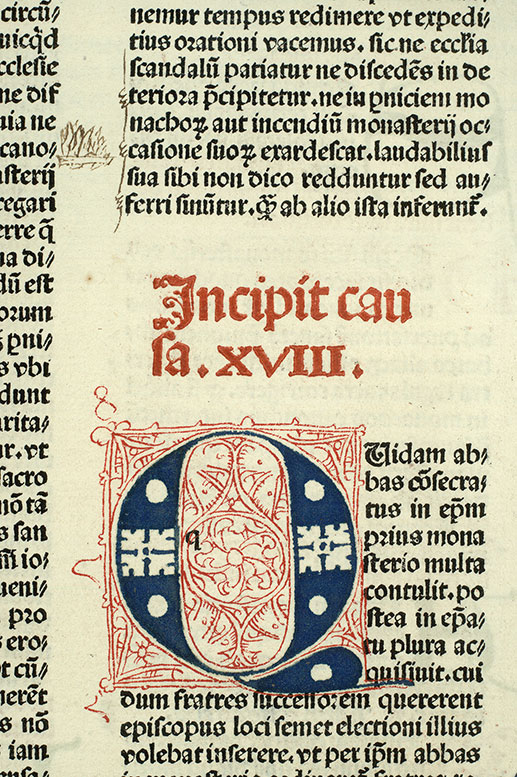 circū/
uicq̄d
cclesie
ne dif
uia ne
cano/
asterij
regari
erre q̄
ua di/
dū est
orum
p̱nis/
s vbi
dunt
arita/
ur. vt
sacro
mō tā
is san
io/
ueni/
pro
s ero/
ot cū/
nerēt
s nō
iam
nemur tempus redimere vt expedi/
tius orationi vacemus. sic ne ecclīa
scandalū patiatur ne discedēs in de
teriora p̄cipitetur. ne in p̱niciem mo
nachoꝝ aut incendiū monasterij oc/
casione suoꝝ exardescat. laudabilius
sua sibi non dico redduntur sed au/
ferri sinūtur. q̄ꝫ ab alio ista inferunt᷑.
Incipit cau
sa. XVIII.
q
Uidam ab/
bas cōsecra/
tus in ep̄m
prius mona
sterio multa
contulit. po
stea in ep̄a/
tu plura ac/
quisiuit. cui
dum fratres successorem quererent
episcopus loci semet electioni illius
volebat inserere. vt per ip̄m abbas